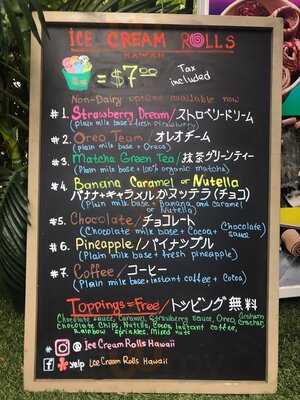 ICE CREAM ROLLS
HAWAII
= $7.00 Tax included
Non-Dairy options available now
#1. Strawberry Dream/ストロベリードリーム
(plain milk base + fresh strawberry)
#2. Oreo Team/オレオチーム
(plain milk base + Oreo)
#3. Matcha Green Tea/抹茶グリーンティー
(plain milk base + 100% organic matcha)
#4. Banana Caramel or Nutella
バナナ+キャラメルorヌッテラ(チョコ)
(Plain milk base + Banana and caramel
or Nutella)
#5. Chocolate/チョコレート
(Chocolate milk base + Cocoa + Chocolate sauce)
#6. Pineapple/パイナップル
(Plain milk base + fresh pineapple)
#7. Coffee/コーヒー
(Plain milk base + instant coffee + Cocoa)
Toppings=Free/トッピング無料
Chocolate sauce, Caramel, Strawberry sauce, Oreo, Graham Cracker,
Chocolate Chips, Nutella, Cocoa, Instant coffee,
Rainbow sprinkles, Mixed nuts
@ Ice Cream Rolls Hawaii
f yelp Ice Cream Rolls Hawaii